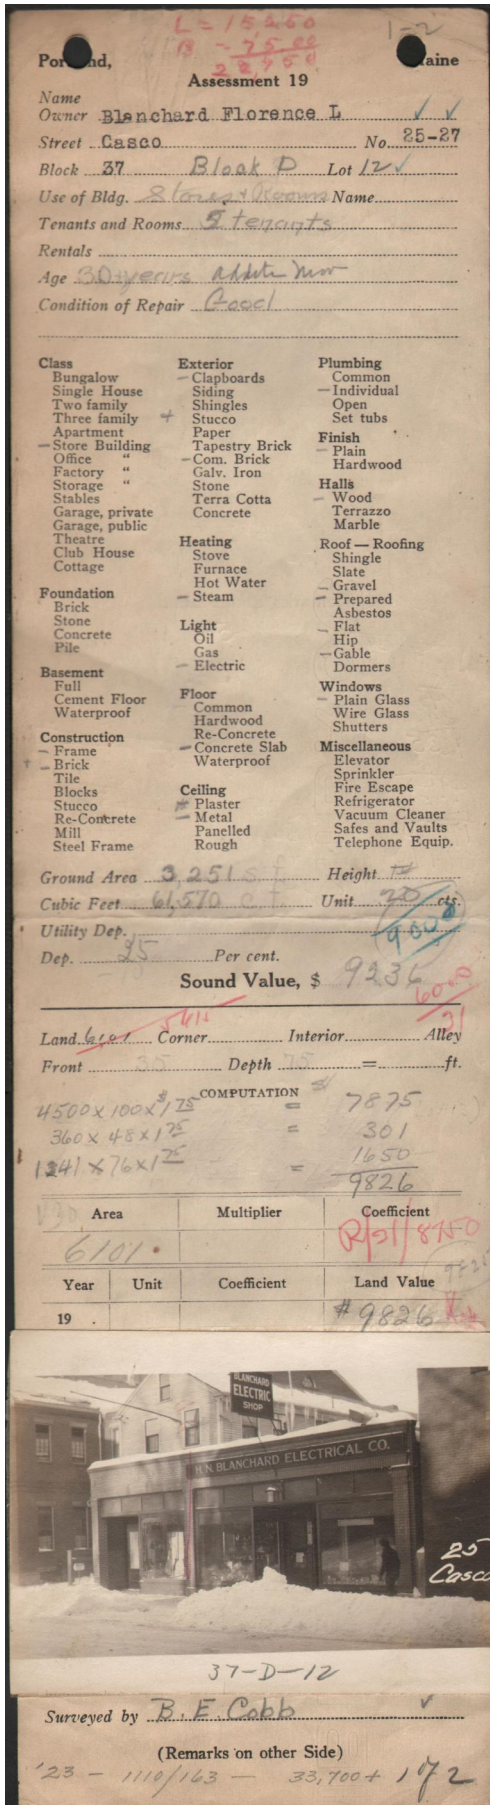 L = 15250
B - 7500
22750
1-2
Portland, Maine
Assessment 19
Name
Owner Blanchard Florence L
Street Casco No. 25-27
Block 37 Block D Lot 12
Use of Bldg. Stores + Rooms Name
Tenants and Rooms 5 tenants
Rentals
Age 30+years addition New
Condition of Repair Good
Class
Bungalow
Single House
Two family
Three family
Apartment
Store Building
Office "
Factory "
Storage "
Stables
Garage, private
Garage, public
Theatre
Club House
Cottage
Foundation
Brick
Stone
Concrete
Pile
Basement
Full
Cement Floor
Waterproof
Construction
- Frame
+ - Brick
Tile
Blocks
Stucco
Re-Concrete
Mill
Steel Frame
Exterior
- Clapboards
Siding
Shingles
+ Stucco
Paper
Tapestry Brick
- Com. Brick
Galv. Iron
Stone
Terra Cotta
Concrete
Heating
Stove
Furnace
Hot Water
- Steam
Light
Oil
Gas
- Electric
Floor
Common
Hardwood
Re-Concrete
- Concrete Slab
Waterproof
Ceiling
Plaster
- Metal
Panelled
Rough
Plumbing
Common
- Individual
Open
Set tubs
Finish
- Plain
Hardwood
Halls
- Wood
Terrazzo
Marble
Roof — Roofing
Shingle
Slate
- Gravel
- Prepared
Asbestos
- Flat
Hip
- Gable
Dormers
Windows
- Plain Glass
Wire Glass
Shutters
Miscellaneous
Elevator
Sprinkler
Fire Escape
Refrigerator
Vacuum Cleaner
Safes and Vaults
Telephone Equip.
Ground Area 3,251 s.f. Height
Cubic Feet 61,570 c.f. Unit 20 cts.
Utility Dep. 9000
Dep. 25 Per cent.
Sound Value, $ 9236
6000/21
5411
Land 6101 Corner Interior Alley
Front 35 Depth 75 = ft.
COMPUTATION
4500 x 100 x $1 75 = 7875
360 x 48 x 1 75 = 301
1241 x 76 x 1 75 = 1650
9826
Area Multiplier Coefficient
6101. R/21/8750
Year Unit Coefficient Land Value
19 # 9826
BLANCHARD
ELECTRIC
SHOP
H.N. BLANCHARD ELECTRICAL CO.
25
Casco
37-D-12
Surveyed by B. E. Cobb
(Remarks on other Side)
'23 - 1110/163 - 33,700+ 1 of 2